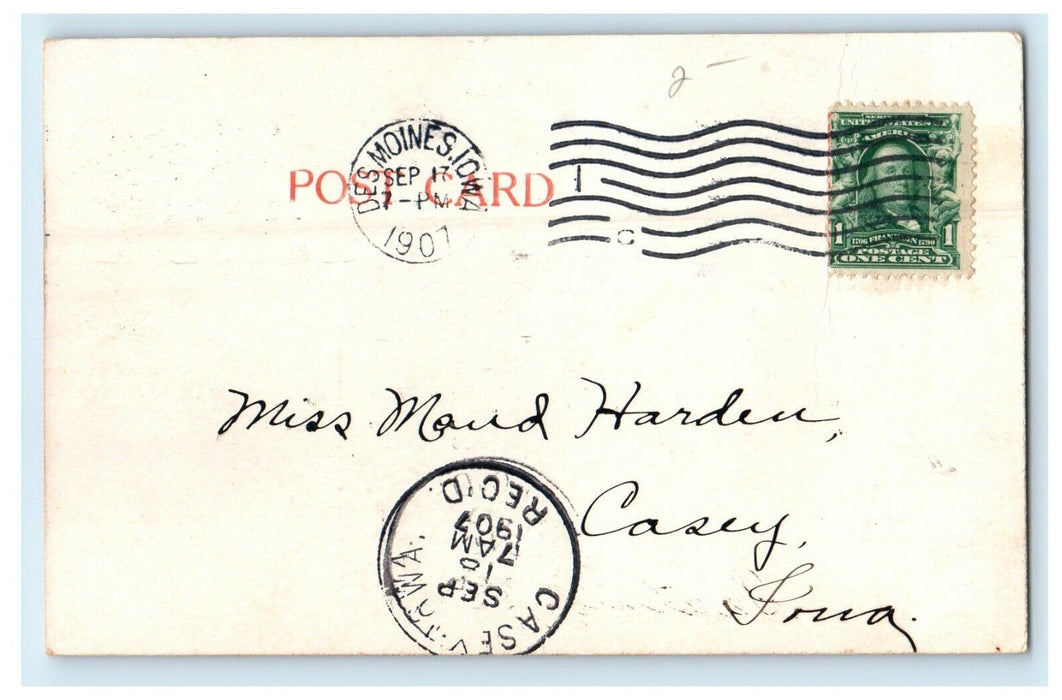 2 -
DES MOINES, IOWA
SEP 17
7 - PM
1907
POST CARD
1
C
UNITED STATES
AMERICA
1 1
1706 FRANKLIN 1790
POSTAGE
ONE CENT
Miss Maud Harden,
Casey,
Iowa.
CASEY, IOWA.
SEP
7 AM
1907
REC'D.